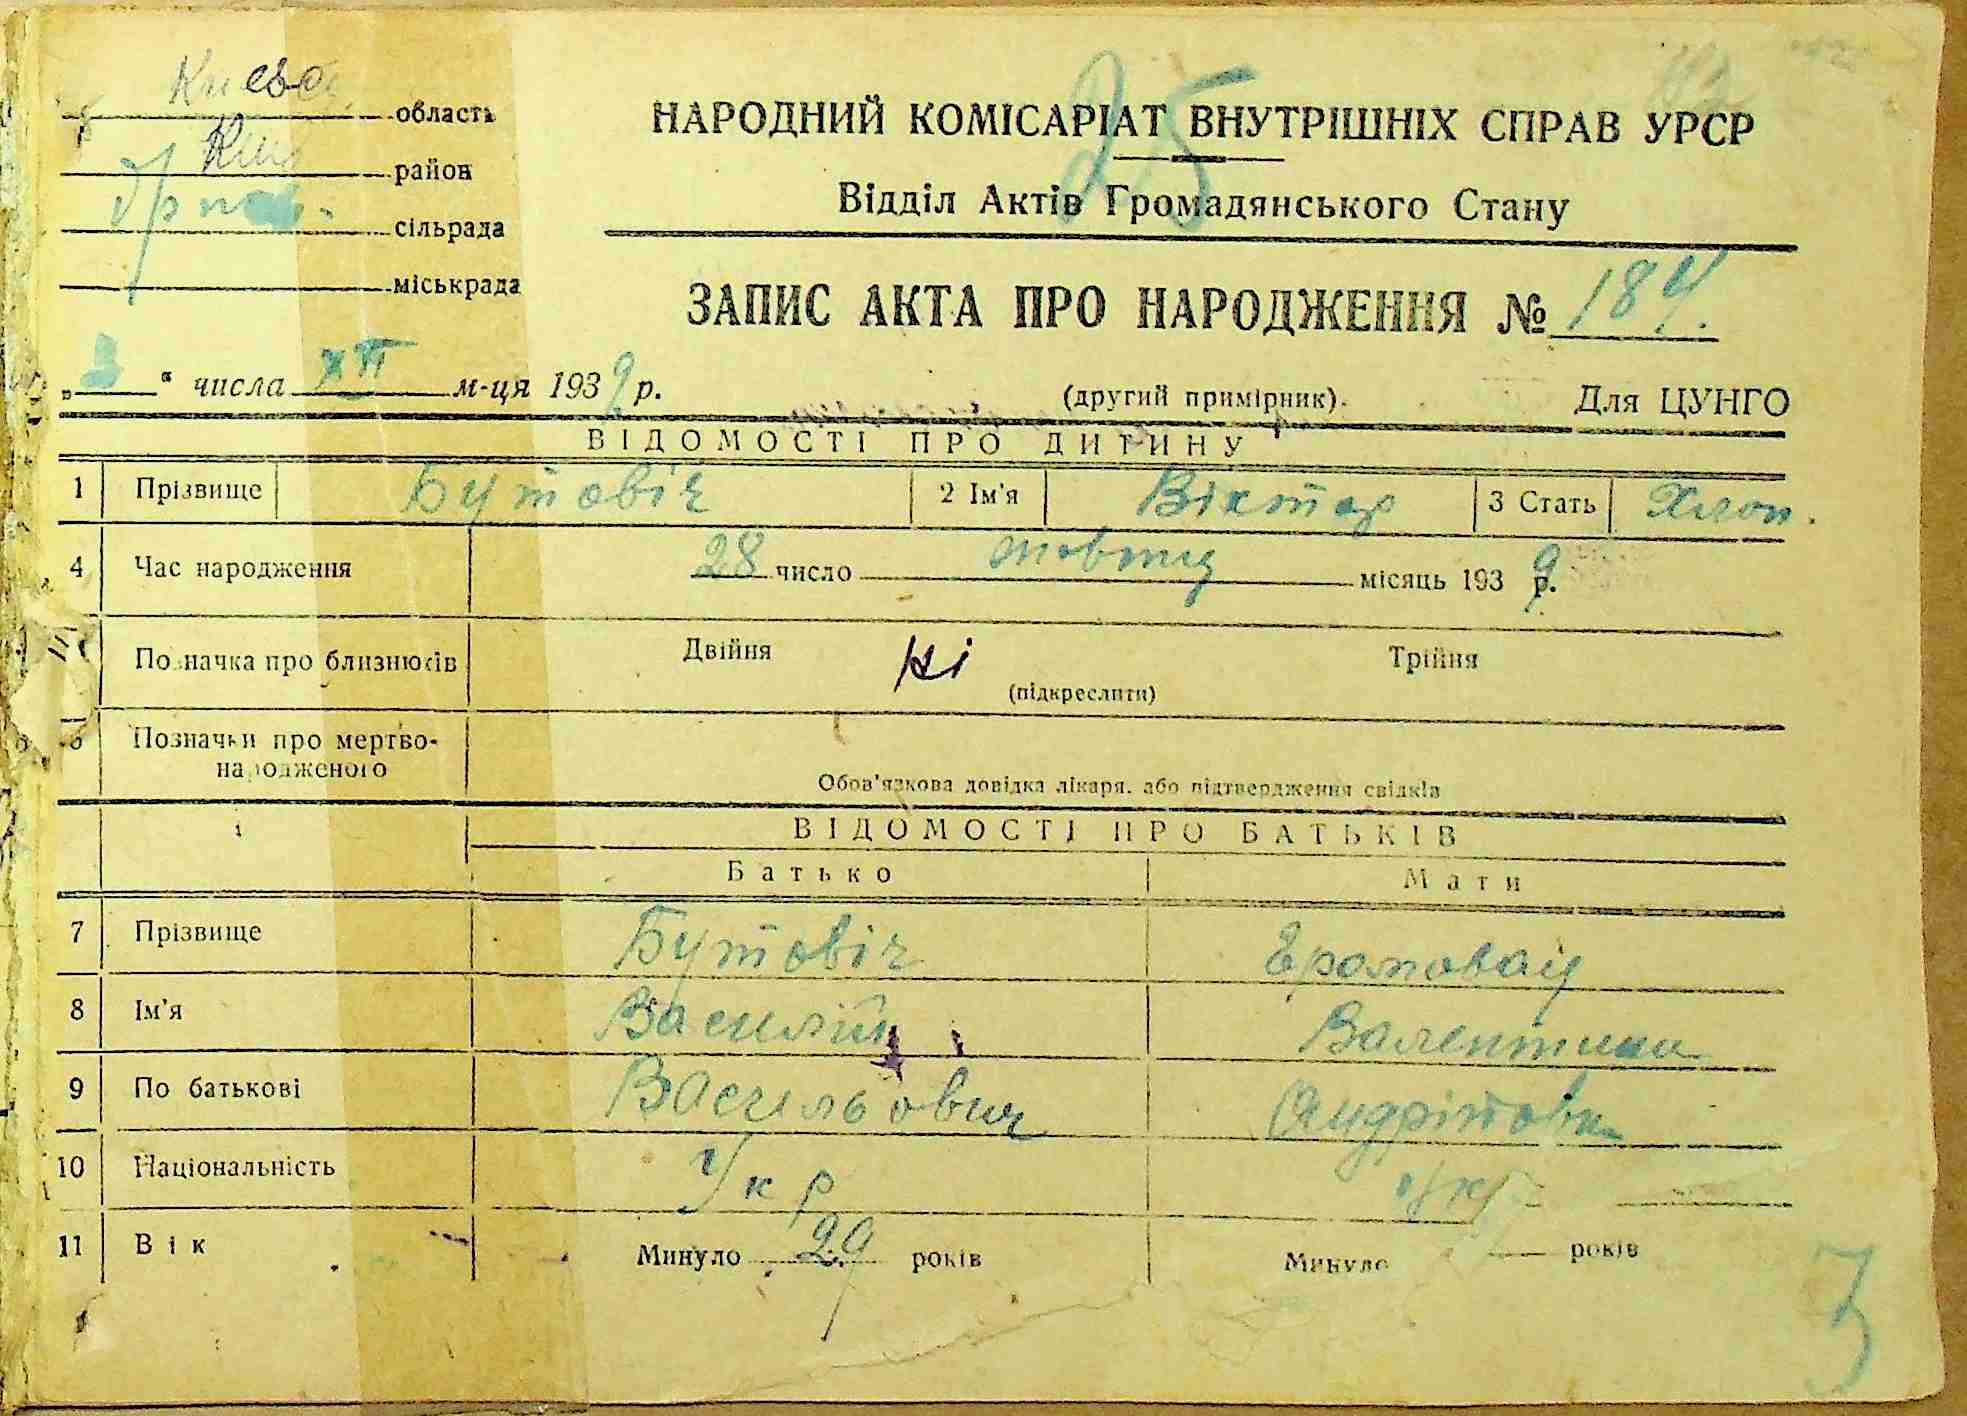 Києвс область
Київ район
Ірпен. сільрада
міськрада
25
НАРОДНИЙ КОМІСАРІАТ ВНУТРІШНІХ СПРАВ УРСР
Відділ Актів Громадянського Стану
ЗАПИС АКТА ПРО НАРОДЖЕННЯ № 184.
„3“ числа XII м-ця 1939 р. (другий примірник). Для ЦУНГО
ВІДОМОСТІ ПРО ДИТИНУ
1 Прізвище Бутовіч 2 Ім'я Віктор 3 Стать Хлоп.
4 Час народження 28 число жовтня місяць 1939 р.
Позначка про близнюків Двійня ні Трійня
(підкреслити)
6 Позначки про мертво-
народженого
Обов'язкова довідка лікаря, або підтвердження свідків
ВІДОМОСТІ ПРО БАТЬКІВ
Батько Мати
7 Прізвище Бутовіч
8 Ім'я Василій Валентина
9 По батькові Васильович Андріївна
10 Національність Укр Укр
11 Вік Минуло 29 років Минуло років